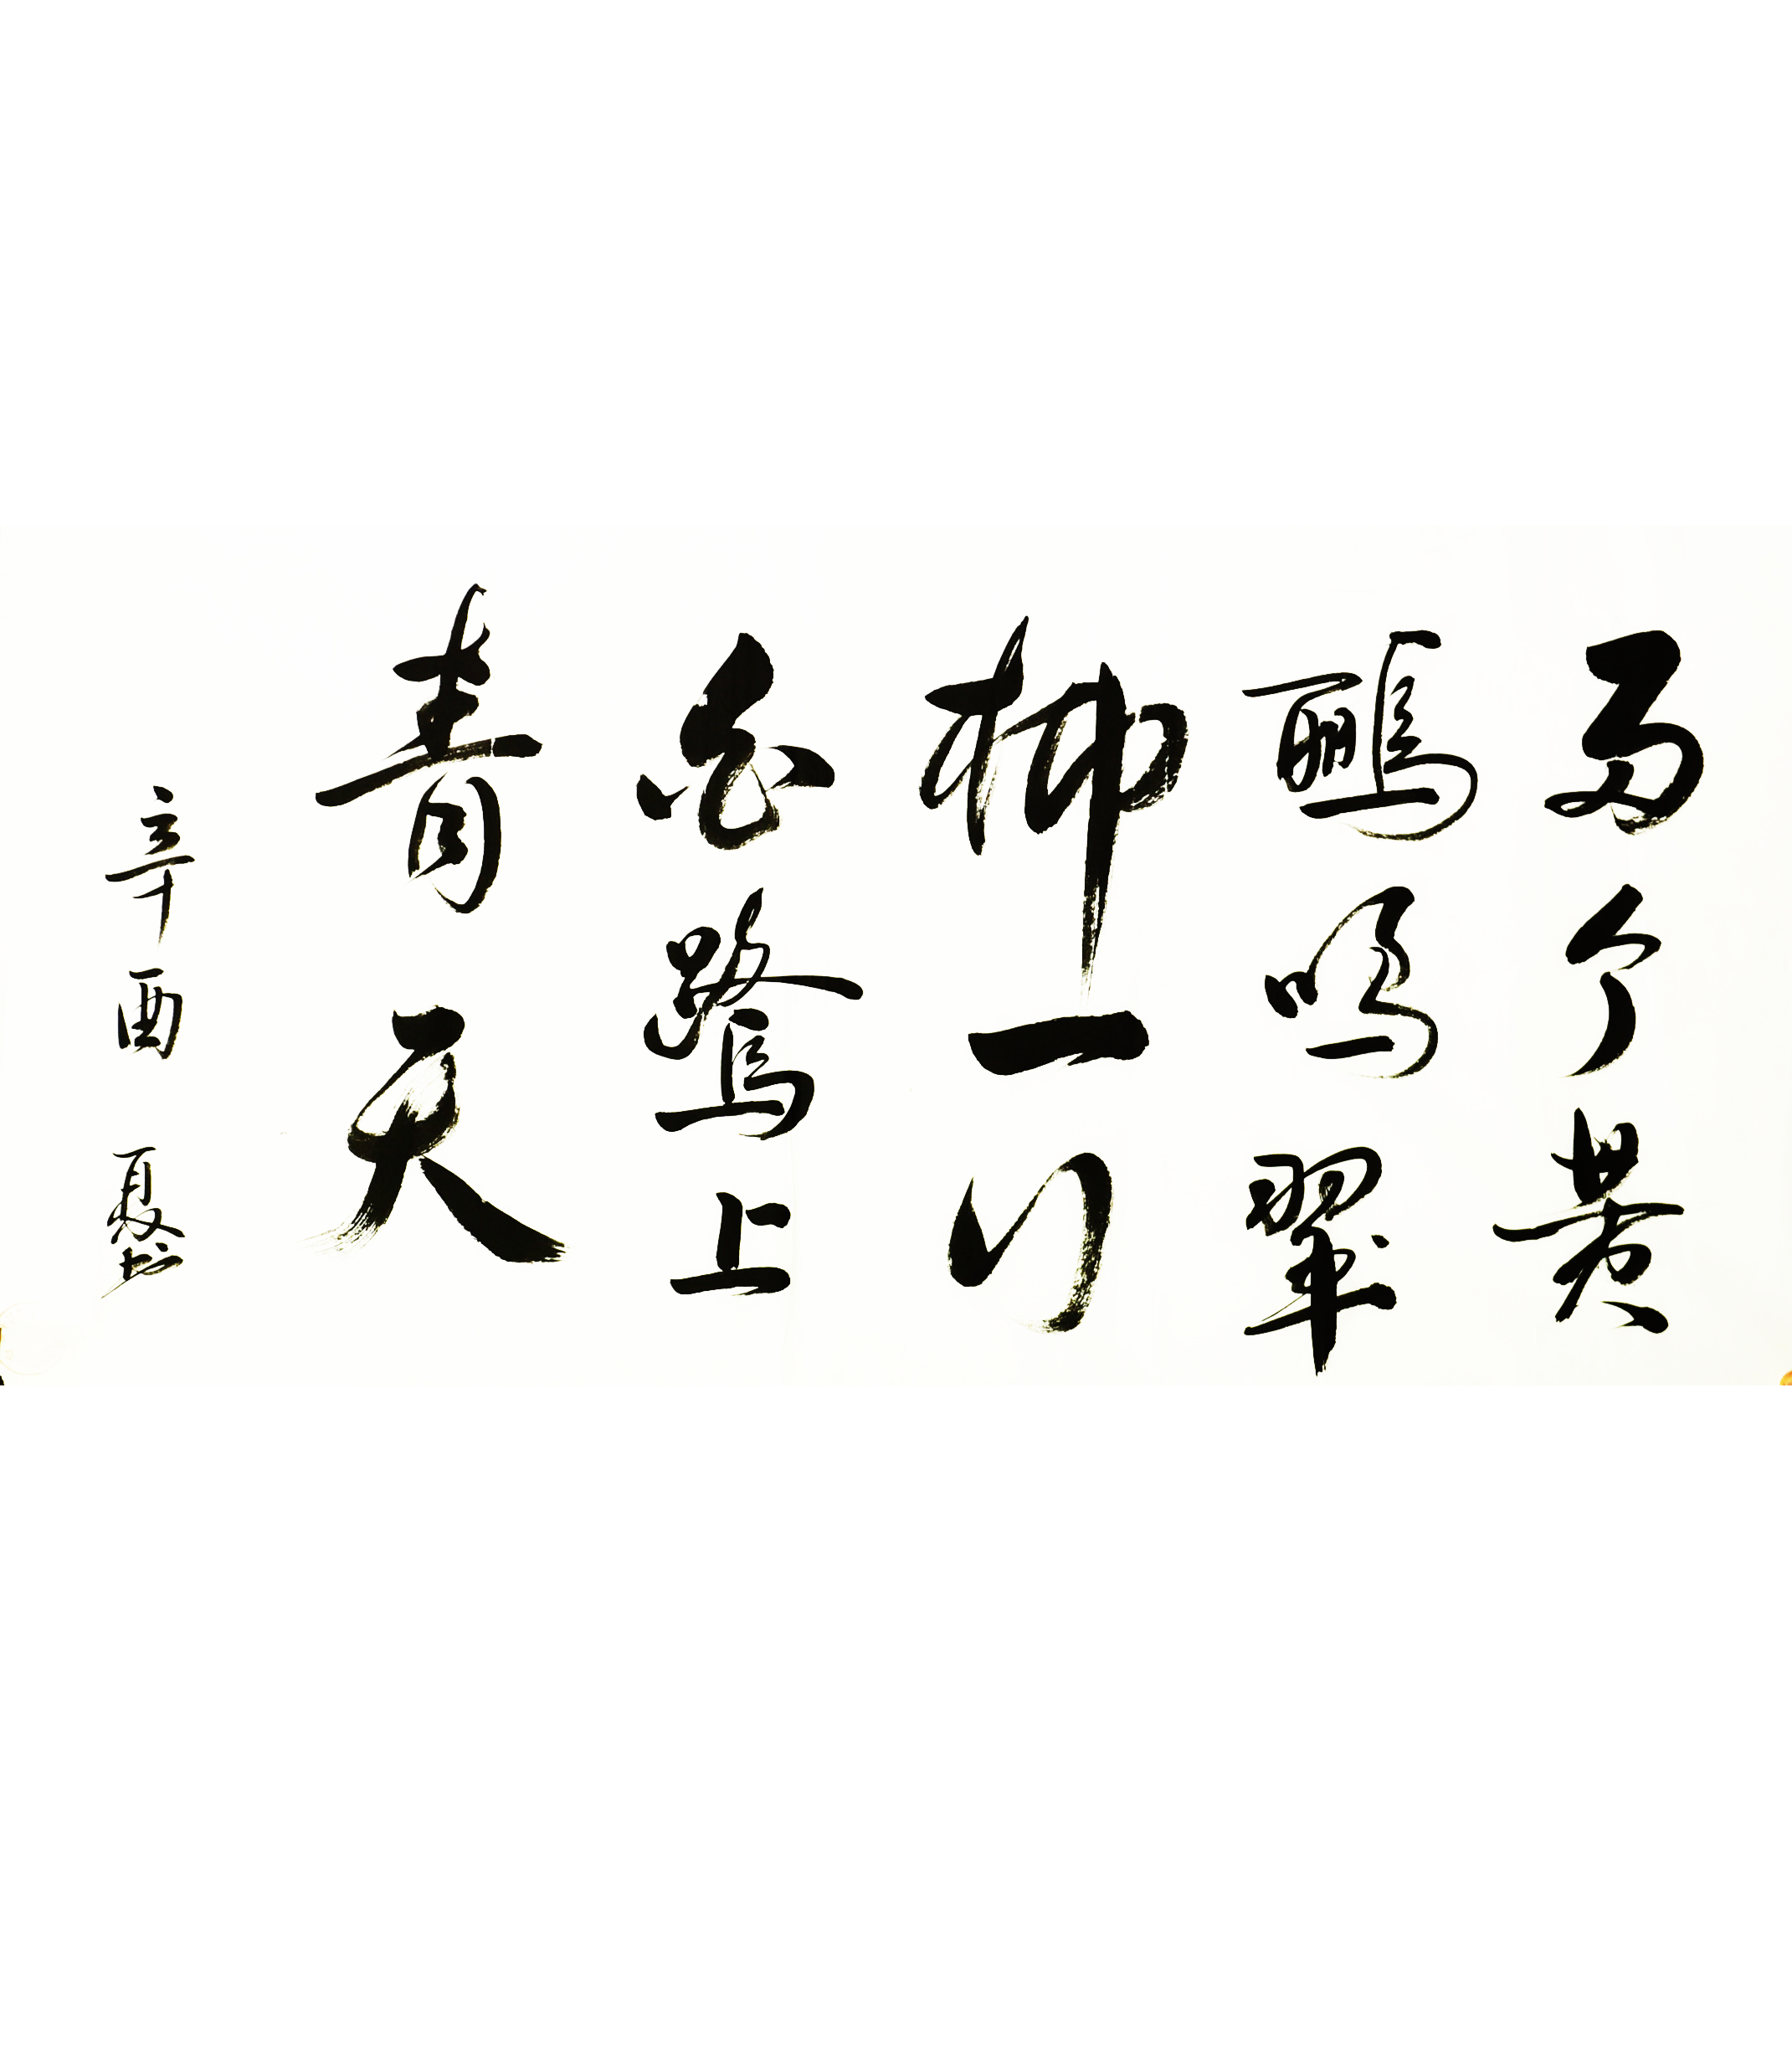 两个黄
鹂鸣翠
柳一行
白鹭上
青天
辛酉夏